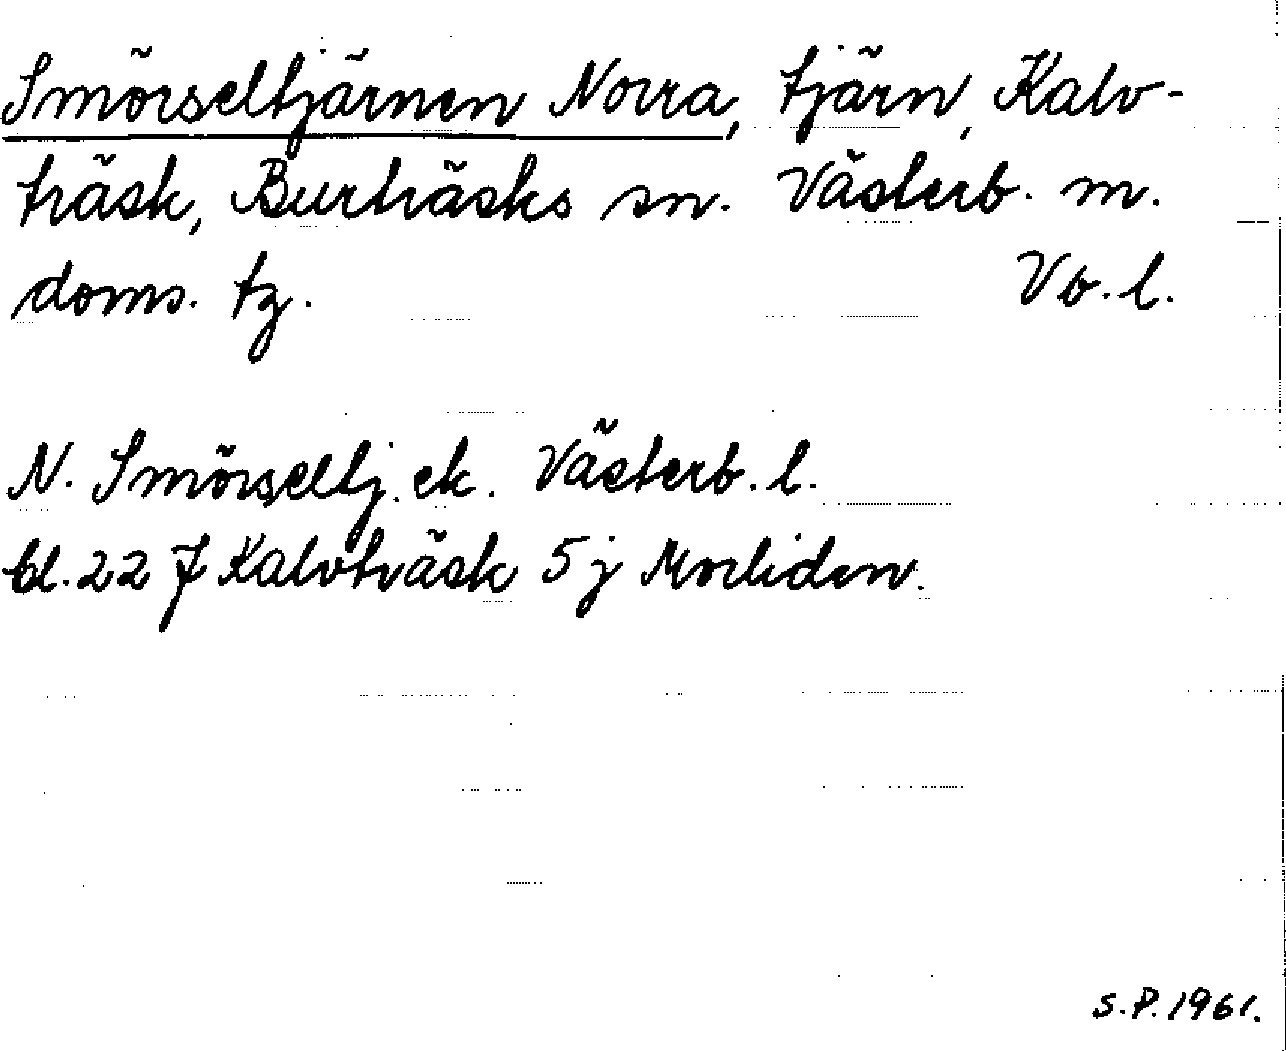 Smörseltjärnen Norra, tjärn, Kalv-
träsk, Burträsks sn. Västerb. m.
doms. tg. Vb. l.
N. Smörseltj. ek. Västerb. l.
bl. 22 J Kalvträsk 5 j Morliden.
S.P. 1961.